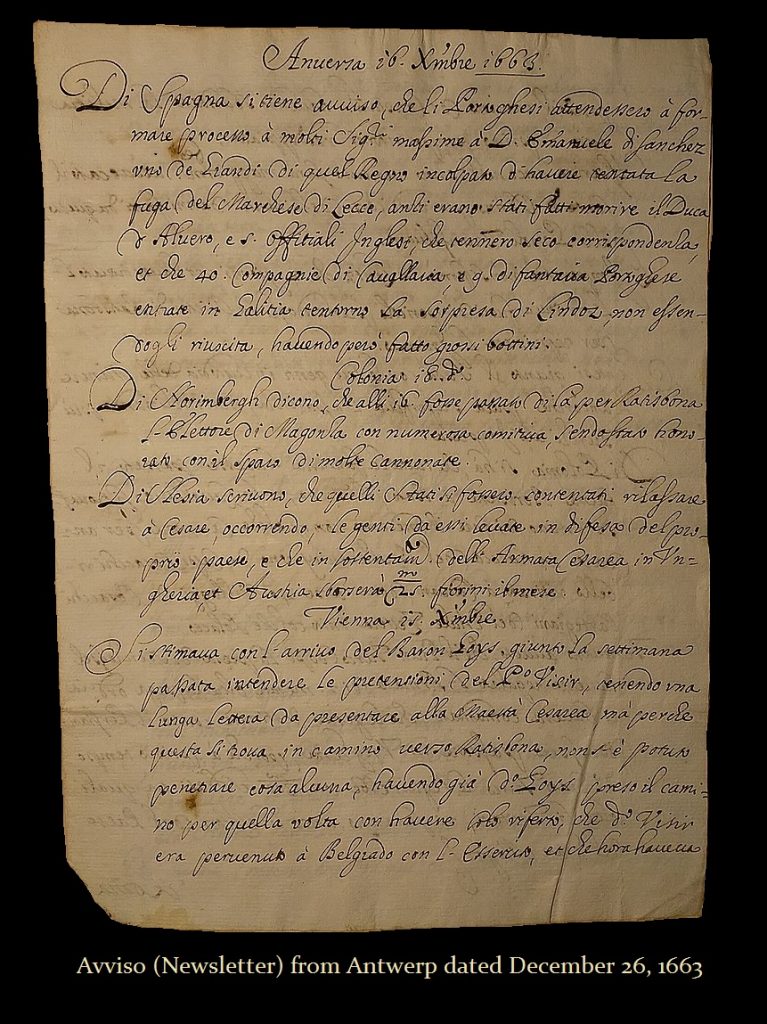 Anversa 16. Xmbre 1663.
Di Spagna si tiene avviso, che li Portoghesi attendessero à for-
mare processo à molti Sig.ri massime à D. Emanuele di Sanchez
uno de Grandi di quel Regno incolpato d'havere tentata la
fuga del Marchese di Lecce, anzi erano stati fatti morire il Duca
d'Alvero, e 5. Offitiali Inglesi, che tennero seco corrispondenza,
et che 40. Compagnie di Cavallaria, e 9. di fantaria Portoghese
entrate in Galitia tentorno la sorpresa di Lindoz, non essen-
dogli riuscita, havendo però fatto grossi bottini.
Colonia 18. d.o
Di Norimbergh dicono, che alli 16 fosse passato di là per Ratisbona
l'Elettore di Magonza con numerosa comitiva, sendo stato hono-
rato con il sparo di molte Cannonate.
Di Slesia scrivono, che quelli Stati si fossero contentati rilassare
à Cesare, occorrendo, le genti da essi levate in difesa del pro-
prio paese, e che in sostentam.to dell'Armata Cesarea in Vn-
gheria, et Austria sborserà fiorini il mese.
Vienna 15. Xmbre
Si stimava con l'arrivo del Baron Goys, giunto la settimana
passata intendere le pretensioni del P.o Visir, tenendo una
lunga lettera da presentare alla Maestà Cesarea mà perche
questa si trova in camino verso Ratisbona, non s'è potuto
penetrare cosa alcuna, havendo già d.o Goys preso il cami-
no per quella volta con havere solo riferto, che d.o Visir
era pervenuto à Belgrado con l'Essercito, et che hora haveva
Avviso (Newsletter) from Antwerp dated December 26, 1663